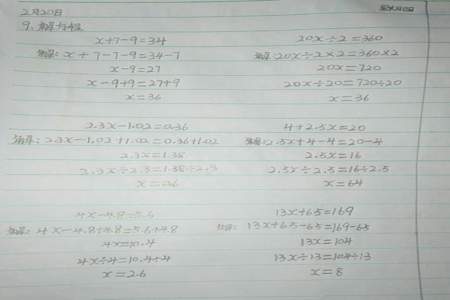 2月20日
9、解方程
x+7-9=34
解: x+7-7-9=34-7
x-9=27
x-9+9=27+9
x=36
20x÷2=360
解: 20x÷2×2=360×2
20x=720
20x÷20=720÷20
x=36
2.3x-1.02=0.36
解: 2.3x-1.02+1.02=0.36+1.02
2.3x=1.38
2.3x÷2.3=1.38÷2.3
x=0.6
4+2.5x=20
解: 2.5x+4-4=20-4
2.5x=16
2.5x÷2.5=16÷2.5
x=64
4x-4.8=5.6
解: 4x-4.8+4.8=5.6+4.8
4x=10.4
4x÷4=10.4÷4
x=2.6
13x+65=169
解: 13x+65-65=169-65
13x=104
13x÷13=104÷13
x=8